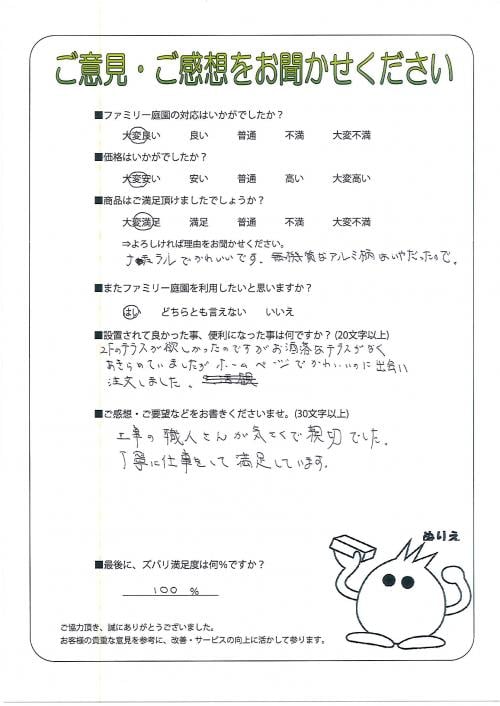 ご意見・ご感想をお聞かせください
■ファミリー庭園の対応はいかがでしたか？
大変良い 良い 普通 不満 大変不満
■価格はいかがでしたか？
大変安い 安い 普通 高い 大変高い
■商品はご満足頂けましたでしょうか？
大変満足 満足 普通 不満 大変不満
⇒よろしければ理由をお聞かせください。
ナチュラルでかわいいです。無機質なアルミ柄はいやだったので。
■またファミリー庭園を利用したいと思いますか？
はい どちらとも言えない いいえ
■設置されて良かった事、便利になった事は何ですか？(20文字以上)
2Fのテラスが欲しかったのですがお洒落なテラスがなく
あきらめていましたがホームページでかわいいのに出会い
注文しました。
■ご感想・ご要望などをお書きくださいませ。(30文字以上)
工事の職人さんが気さくで親切でした。
丁寧に仕事をして満足しています。
ぬりえ
■最後に、ズバリ満足度は何％ですか？
100 %
ご協力頂き、誠にありがとうございました。
お客様の貴重な意見を参考に、改善・サービスの向上に活かして参ります。